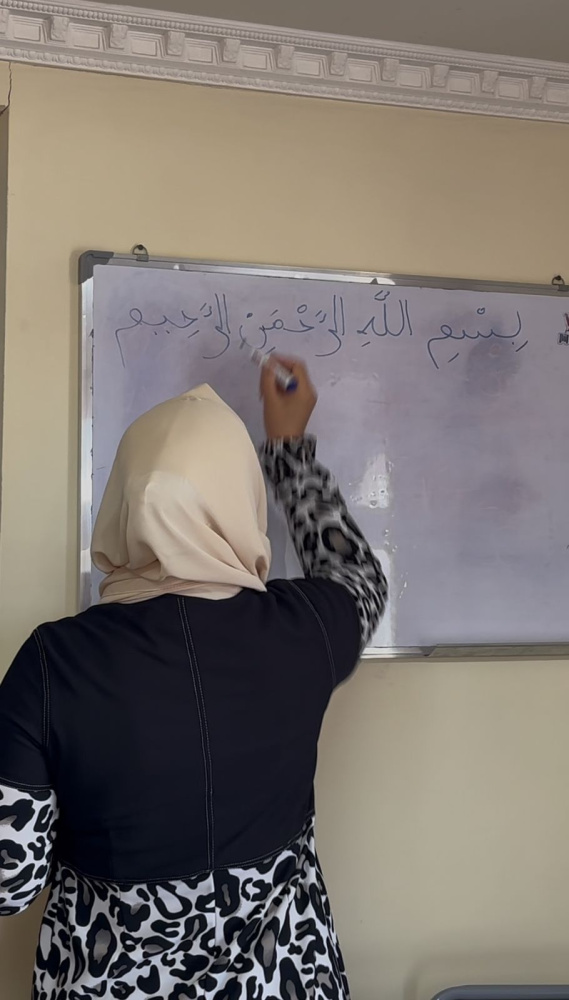 بِسْمِ اللَّهِ الرَّحْمَنِ الرَّحِيم